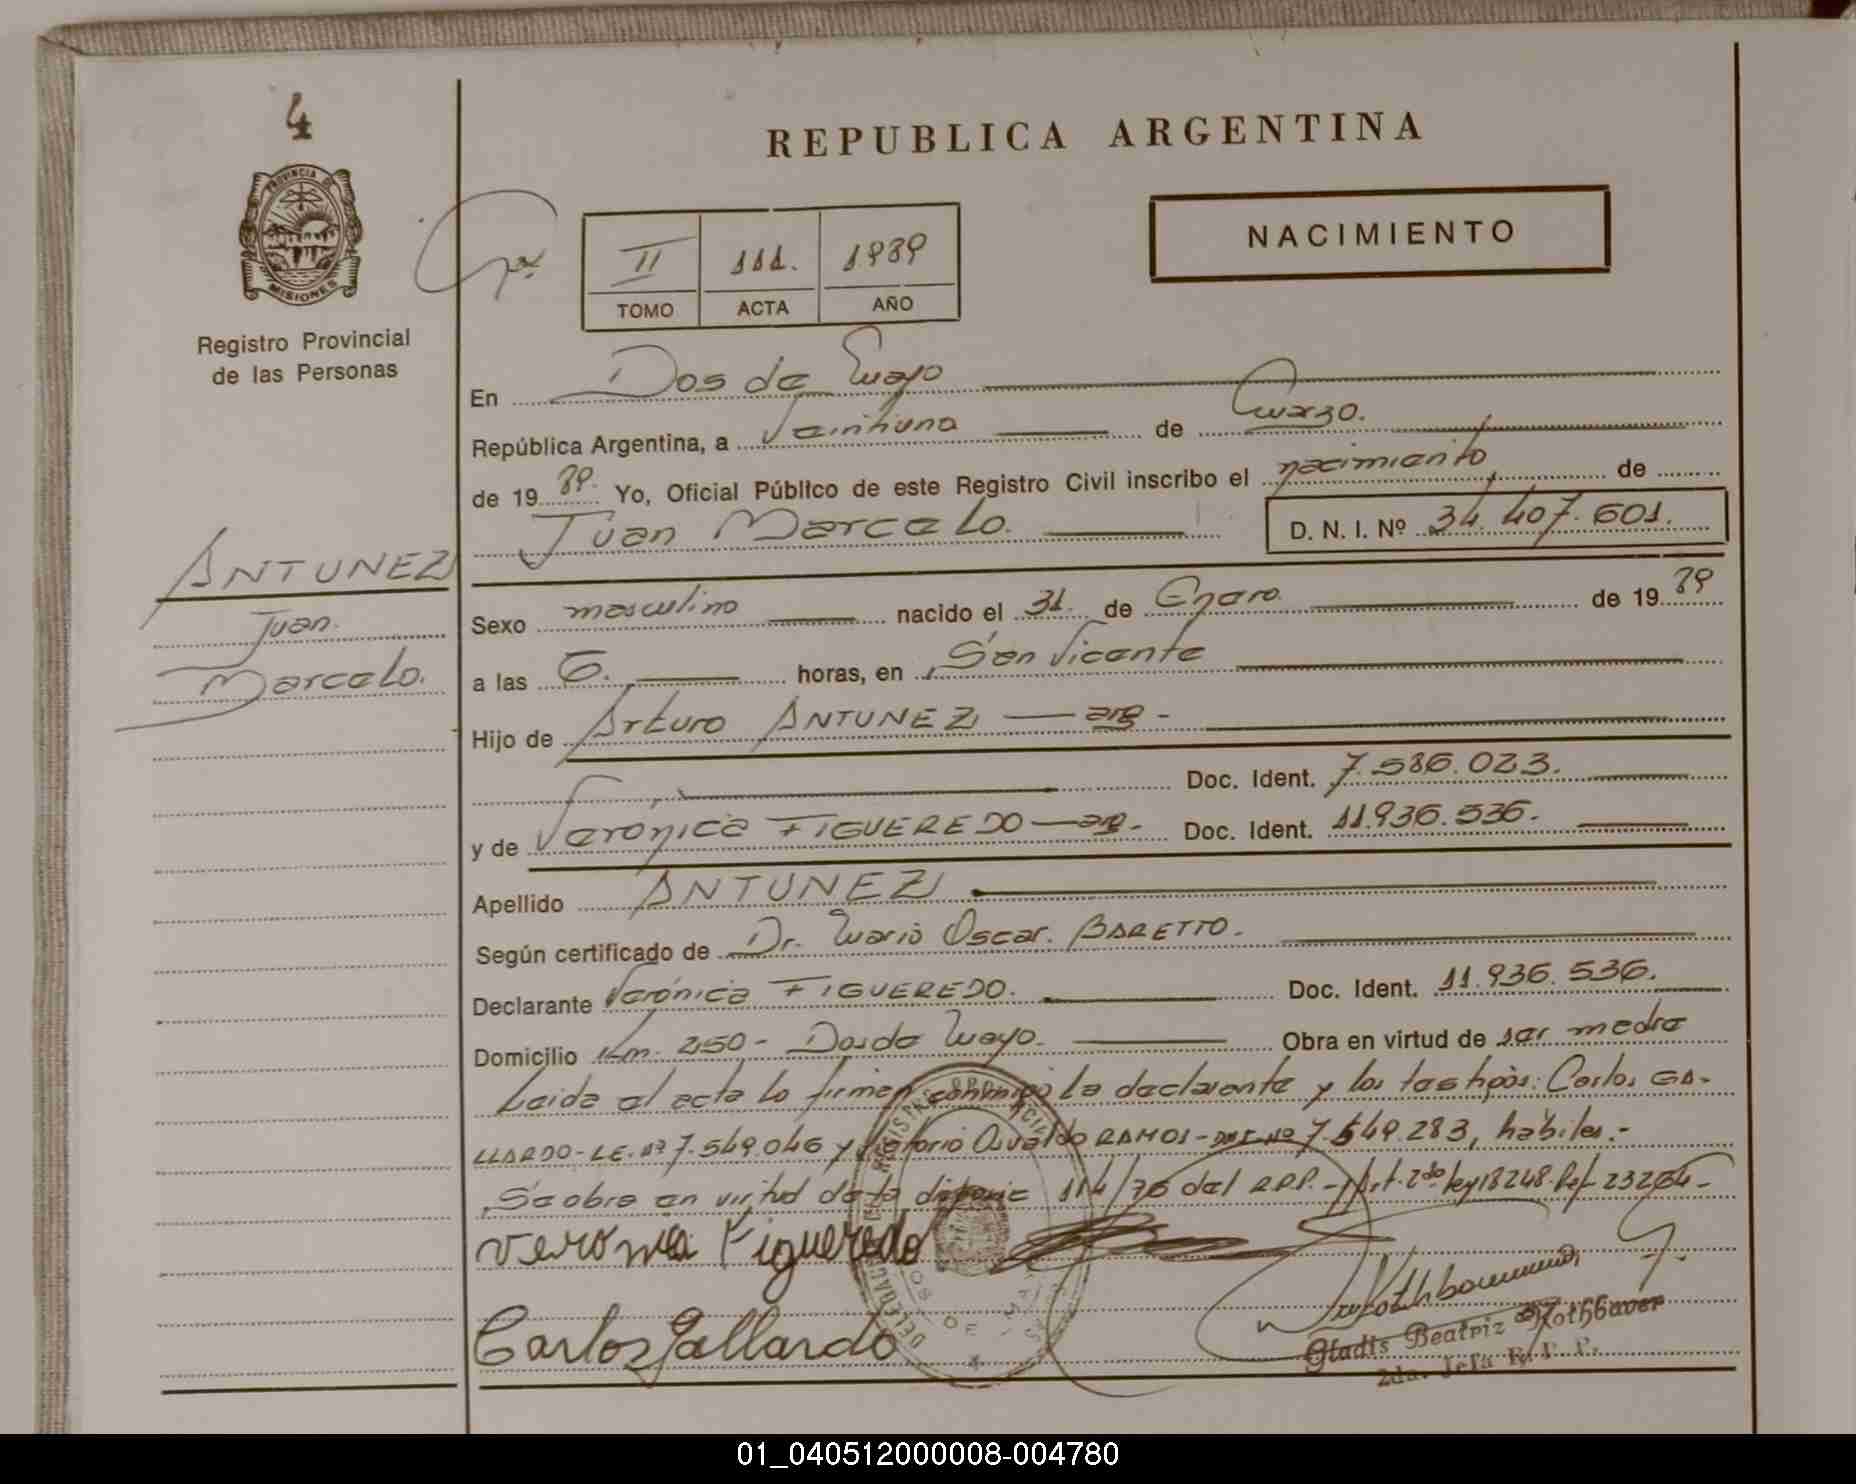 4
PROVINCIA DE
MISIONES
Registro Provincial
de las Personas
ANTUNEZ
Juan
Marcelo.
REPUBLICA ARGENTINA
NACIMIENTO
II 111. 1989
TOMO ACTA AÑO
En Dos de Mayo
República Argentina, a Veintiuno de Marzo.
de 19 89. Yo, Oficial Público de este Registro Civil inscribo el nacimiento de
Juan Marcelo. D. N. I. Nº 34.407.601.
Sexo masculino nacido el 31. de Enero de 19 89
a las 6. horas, en San Vicente
Hijo de Arturo ANTUNEZ — arg -
Doc. Ident. 7.586.023.
y de Verónica FIGUEREDO — arg. Doc. Ident. 11.936.536.
Apellido ANTUNEZ
Según certificado de Dr. Mario Oscar. BARETTO.
Declarante Verónica FIGUEREDO. Doc. Ident. 11.936.536.
Domicilio Km. 250 - Dos de Mayo. Obra en virtud de ser madre
Leida el acta lo firman conmigo la declarante y los testigos: Carlos GA-
LLARDO - LE. Nº 7.549.046 y Osvaldo RAMOS - DNI Nº 7.549.283, hábiles.-
Se obra en virtud de la 114/76 del R.P.P. - Art. 2do ley 18248. Ref. 23264 -
Veronica Figueredo
Carlos Gallardo
Gladis Beatriz Rothbauer
2da. Jefa R. P. P.
01_040512000008-004780